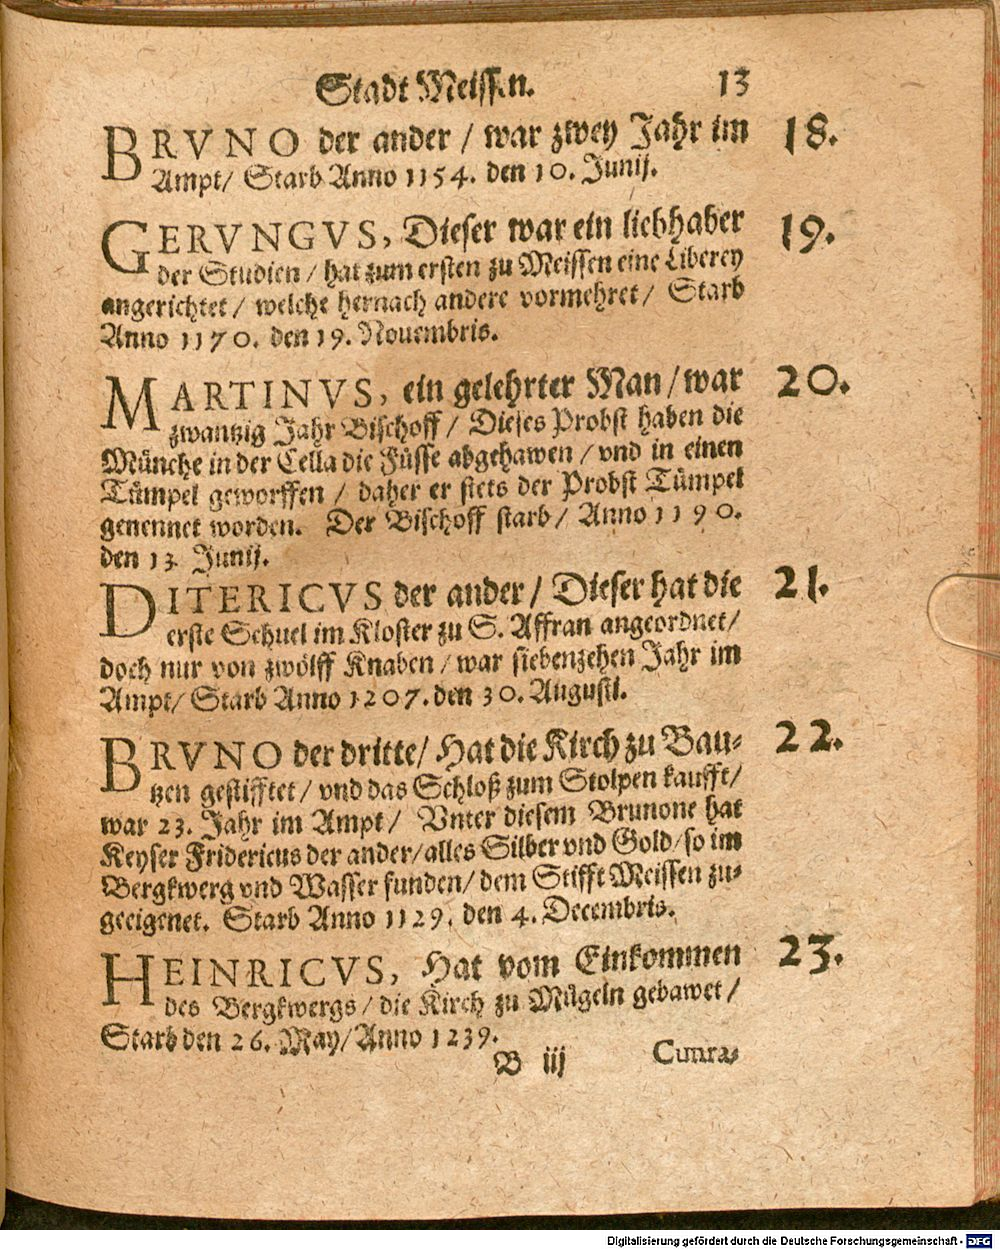 Stadt Meissen. 13
BRVNO der ander / war zwey Jahr im 18.
Ampt/ Starb Anno 1154. den 10. Junij.
GERVNGVS, Dieser war ein liebhaber 19.
der Studien / hat zum ersten zu Meissen eine Liberey
angerichtet / welche hernach andere vormehret / Starb
Anno 1170. den 19. Nouembris.
MARTINVS, ein gelehrter Man / war 20.
zwantzig Jahr Bischoff / Dieses Probst haben die
Münche in der Cella die Füsse abgehawen / vnd in einen
Tümpel geworffen / daher er stets der Probst Tümpel
genennet worden. Der Bischoff starb / Anno 1190.
den 13. Junij.
DITERICVS der ander / Dieser hat die 21.
erste Schuel im Kloster zu S. Affran angeordnet /
doch nur von zwölff Knaben / war siebenzehen Jahr im
Ampt/ Starb Anno 1207. den 30. Augusti.
BRVNO der dritte / Hat die Kirch zu Bau- 22.
tzen gestifftet / vnd das Schloß zum Stolpen kaufft /
war 23. Jahr im Ampt / Vnter diesem Brunone hat
Keyser Fridericus der ander / alles Silber vnd Gold / so im
Bergkwerg vnd Wasser funden / dem Stifft Meissen zu-
geeigenet. Starb Anno 1129. den 4. Decembris.
HEINRICVS, Hat vom Einkommen 23.
des Bergkwergs / die Kirch zu Mügeln gebawet /
Starb den 26. May / Anno 1239.
B iij Cunra-
Digitalisierung gefördert durch die Deutsche Forschungsgemeinschaft - DFG